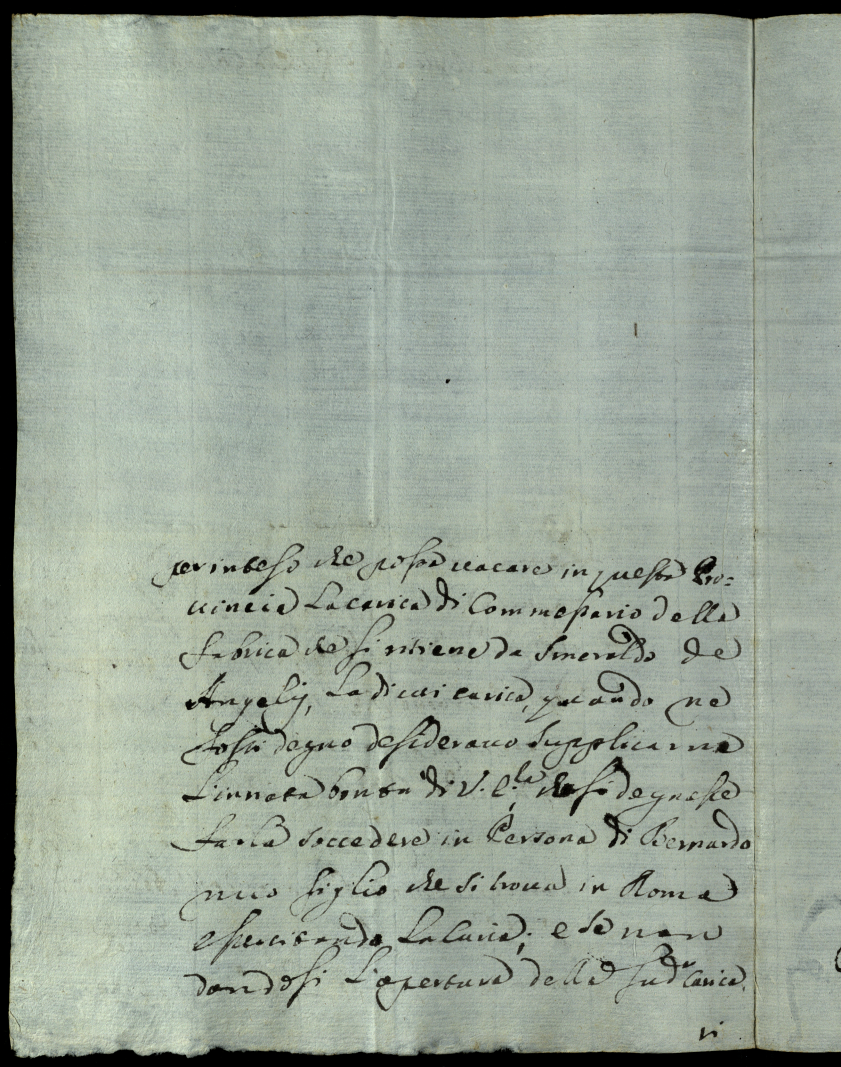 per inteso che possa uacare in questa Pro=
uincia La carica di Commessario della
fabrica che si ritiene da Smeraldo de
Angelij, La di cui carica, quando ne
fossi degno desiderauo supplicarne
L'innata bontà di V. E.za che si degnasse
farla soccedere in Persona di Bernardo
mio figlio che si troua in Roma
esercitando La Curia; e se non
dandosi L'apertura della sud.a Carica
vi